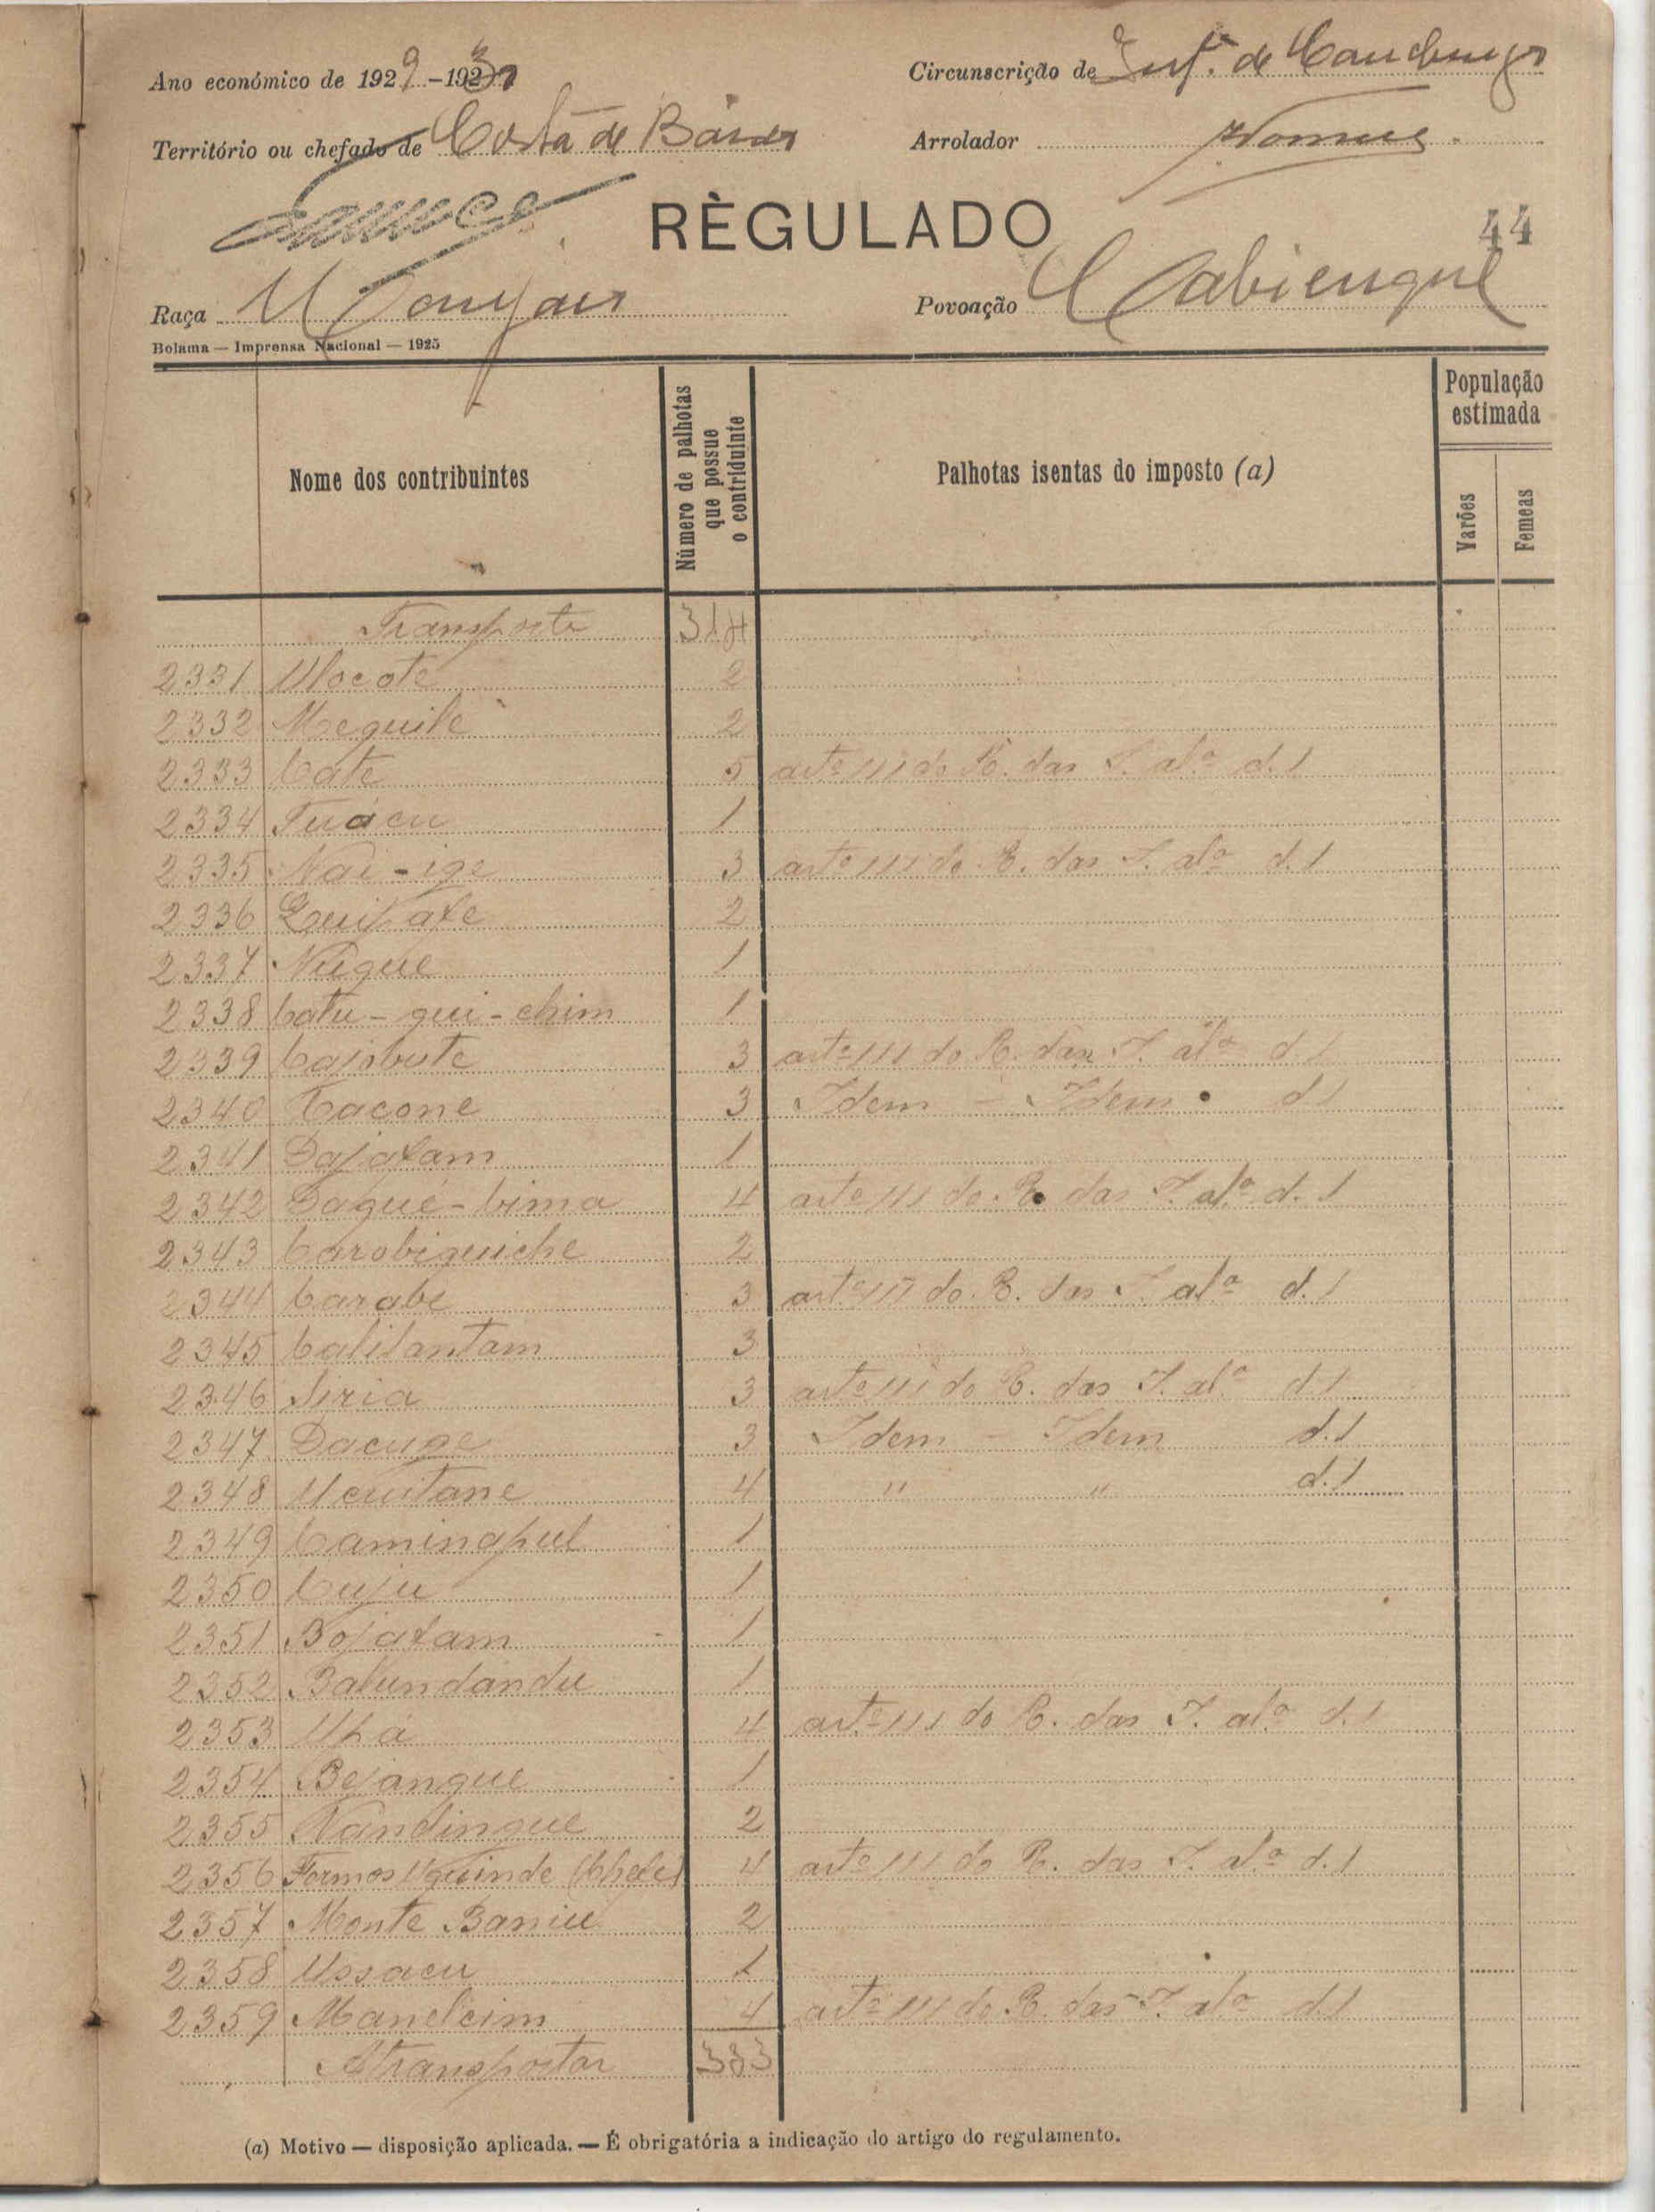 Ano económico de 1929-1930
Circunscrição de de
Território ou chefado de Costa de
Arrolador
RÈGULADO
44
Raça Povoação Cabiengue
Bolama — Imprensa Nacional — 1925
Nome dos contribuintes
Número de palhotas que possue o contriduinte
Palhotas isentas do imposto (a)
População estimada
Varões
Femeas
Transporte 314
2331 Ulocote 2
2332 Meguile 2
2333 Cate 5 artº 111 do R. das I. alª d. 1
2334 Tuácu 1
2335 Nai-ige 3 artº 111 do R. das I. alª d. 1
2336 2
2337 Nugue 1
2338 Catu-gui-chim 1
2339 Cajobute 3 artº 111 do R. das I. alª d. 1
2340 Cacone 3 Idem - Idem d. 1
2341 Dajatam 1
2342 Dagué-bima 4 artº 111 do R. das I. alª d. 1
2343 Carobiguiche 2
2344 Carabe 3 artº 111 do R. das I. alª d. 1
2345 Calilantam 3
2346 Siria 3 artº 111 do R. das I. alª d. 1
2347 Dacuge 3 Idem - Idem d. 1
2348 Ucuitane 4 " " d. 1
2349 Caminapul 1
2350 Cuju 1
2351 Bojatam 1
2352 Balundandu 1
2353 Upá 4 artº 111 do R. das I. alª d. 1
2354 Bejangue 1
2355 Nandingue 2
2356 Formos (Chefe) 4 artº 111 do R. das I. alª d. 1
2357 Monte Baniu 2
2358 Ussacu 1
2359 Manelcim 4 artº 111 do R. das I. alª d. 1
A transportar 383
(a) Motivo — disposição aplicada. — É obrigatória a indicação do artigo do regulamento.